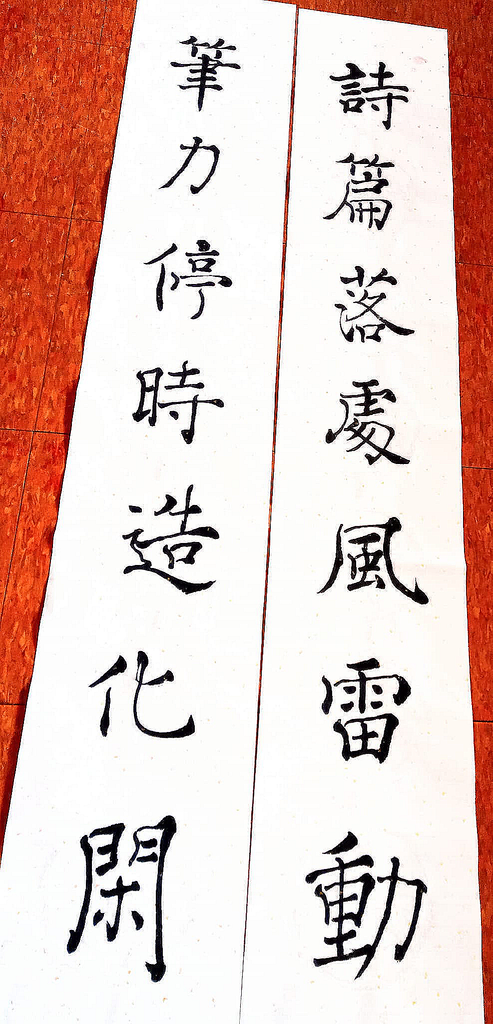 詩篇落處風雷動
筆力停時造化閑